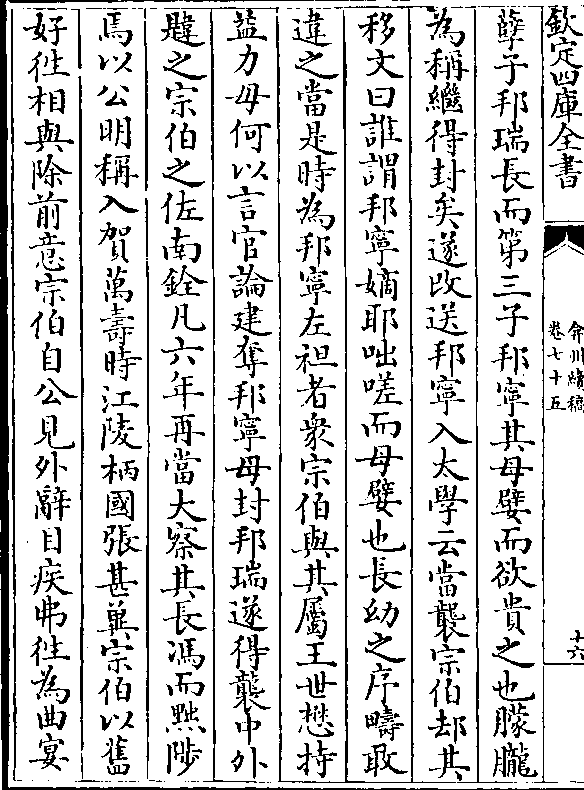 欽定四庫全書
弇州續稿
卷七十五
十六
孽子邦瑞長而第三子邦寧其母嬖而欲貴之也朦朧
為稱繼得封矣遂改送邦寧入太學云當襲宗伯却其
移文曰誰謂邦寧嫡耶咄嗟而母嬖也長幼之序疇敢
違之當是時為邦寧左袒者衆宗伯與其屬王世懋持
益力毋何以言官論建奪邦寧母封邦瑞遂得襲中外
韙之宗伯之佐南銓凡六年再當大察其長馮而黜陟
焉以公明稱入賀萬壽時江陵柄國張甚與宗伯以舊
好徃相與除前意宗伯自公見外辭目疾弗徃為曲宴